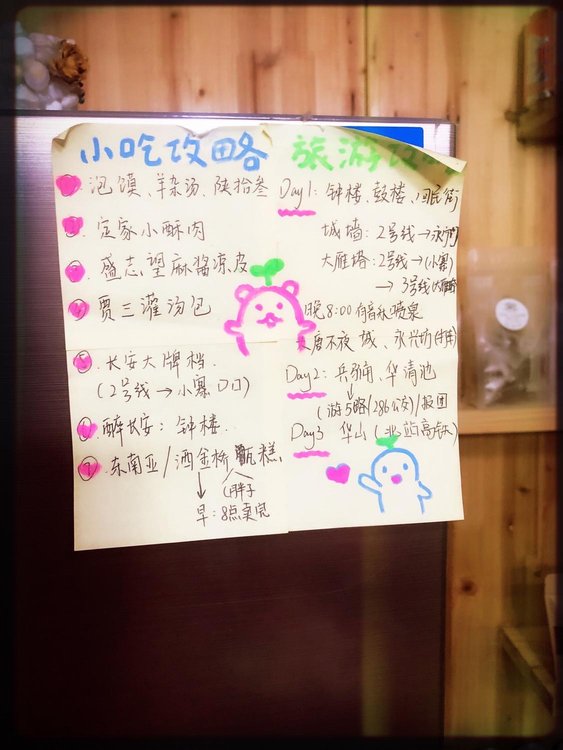 小吃攻略
① 泡馍、羊杂汤、陕拾叁
② 定家小酥肉
③ 盛志望麻酱凉皮
④ 贾三灌汤包
⑤ 长安大牌档
(2号线→小寨D口)
⑥ 醉长安：钟楼
⑦ 东南亚/洒金桥甑糕
(胖子
早：8点卖完
旅游攻略
Day1：钟楼、鼓楼、回民街
城墙：2号线→永宁门
大雁塔：2号线→(小寨)
→3号线(大雁塔)
晚8:00有音乐喷泉
大唐不夜城、永兴坊
Day2：兵马俑、华清池
(游5路/286公交)/报团
Day3 华山(北站高铁)